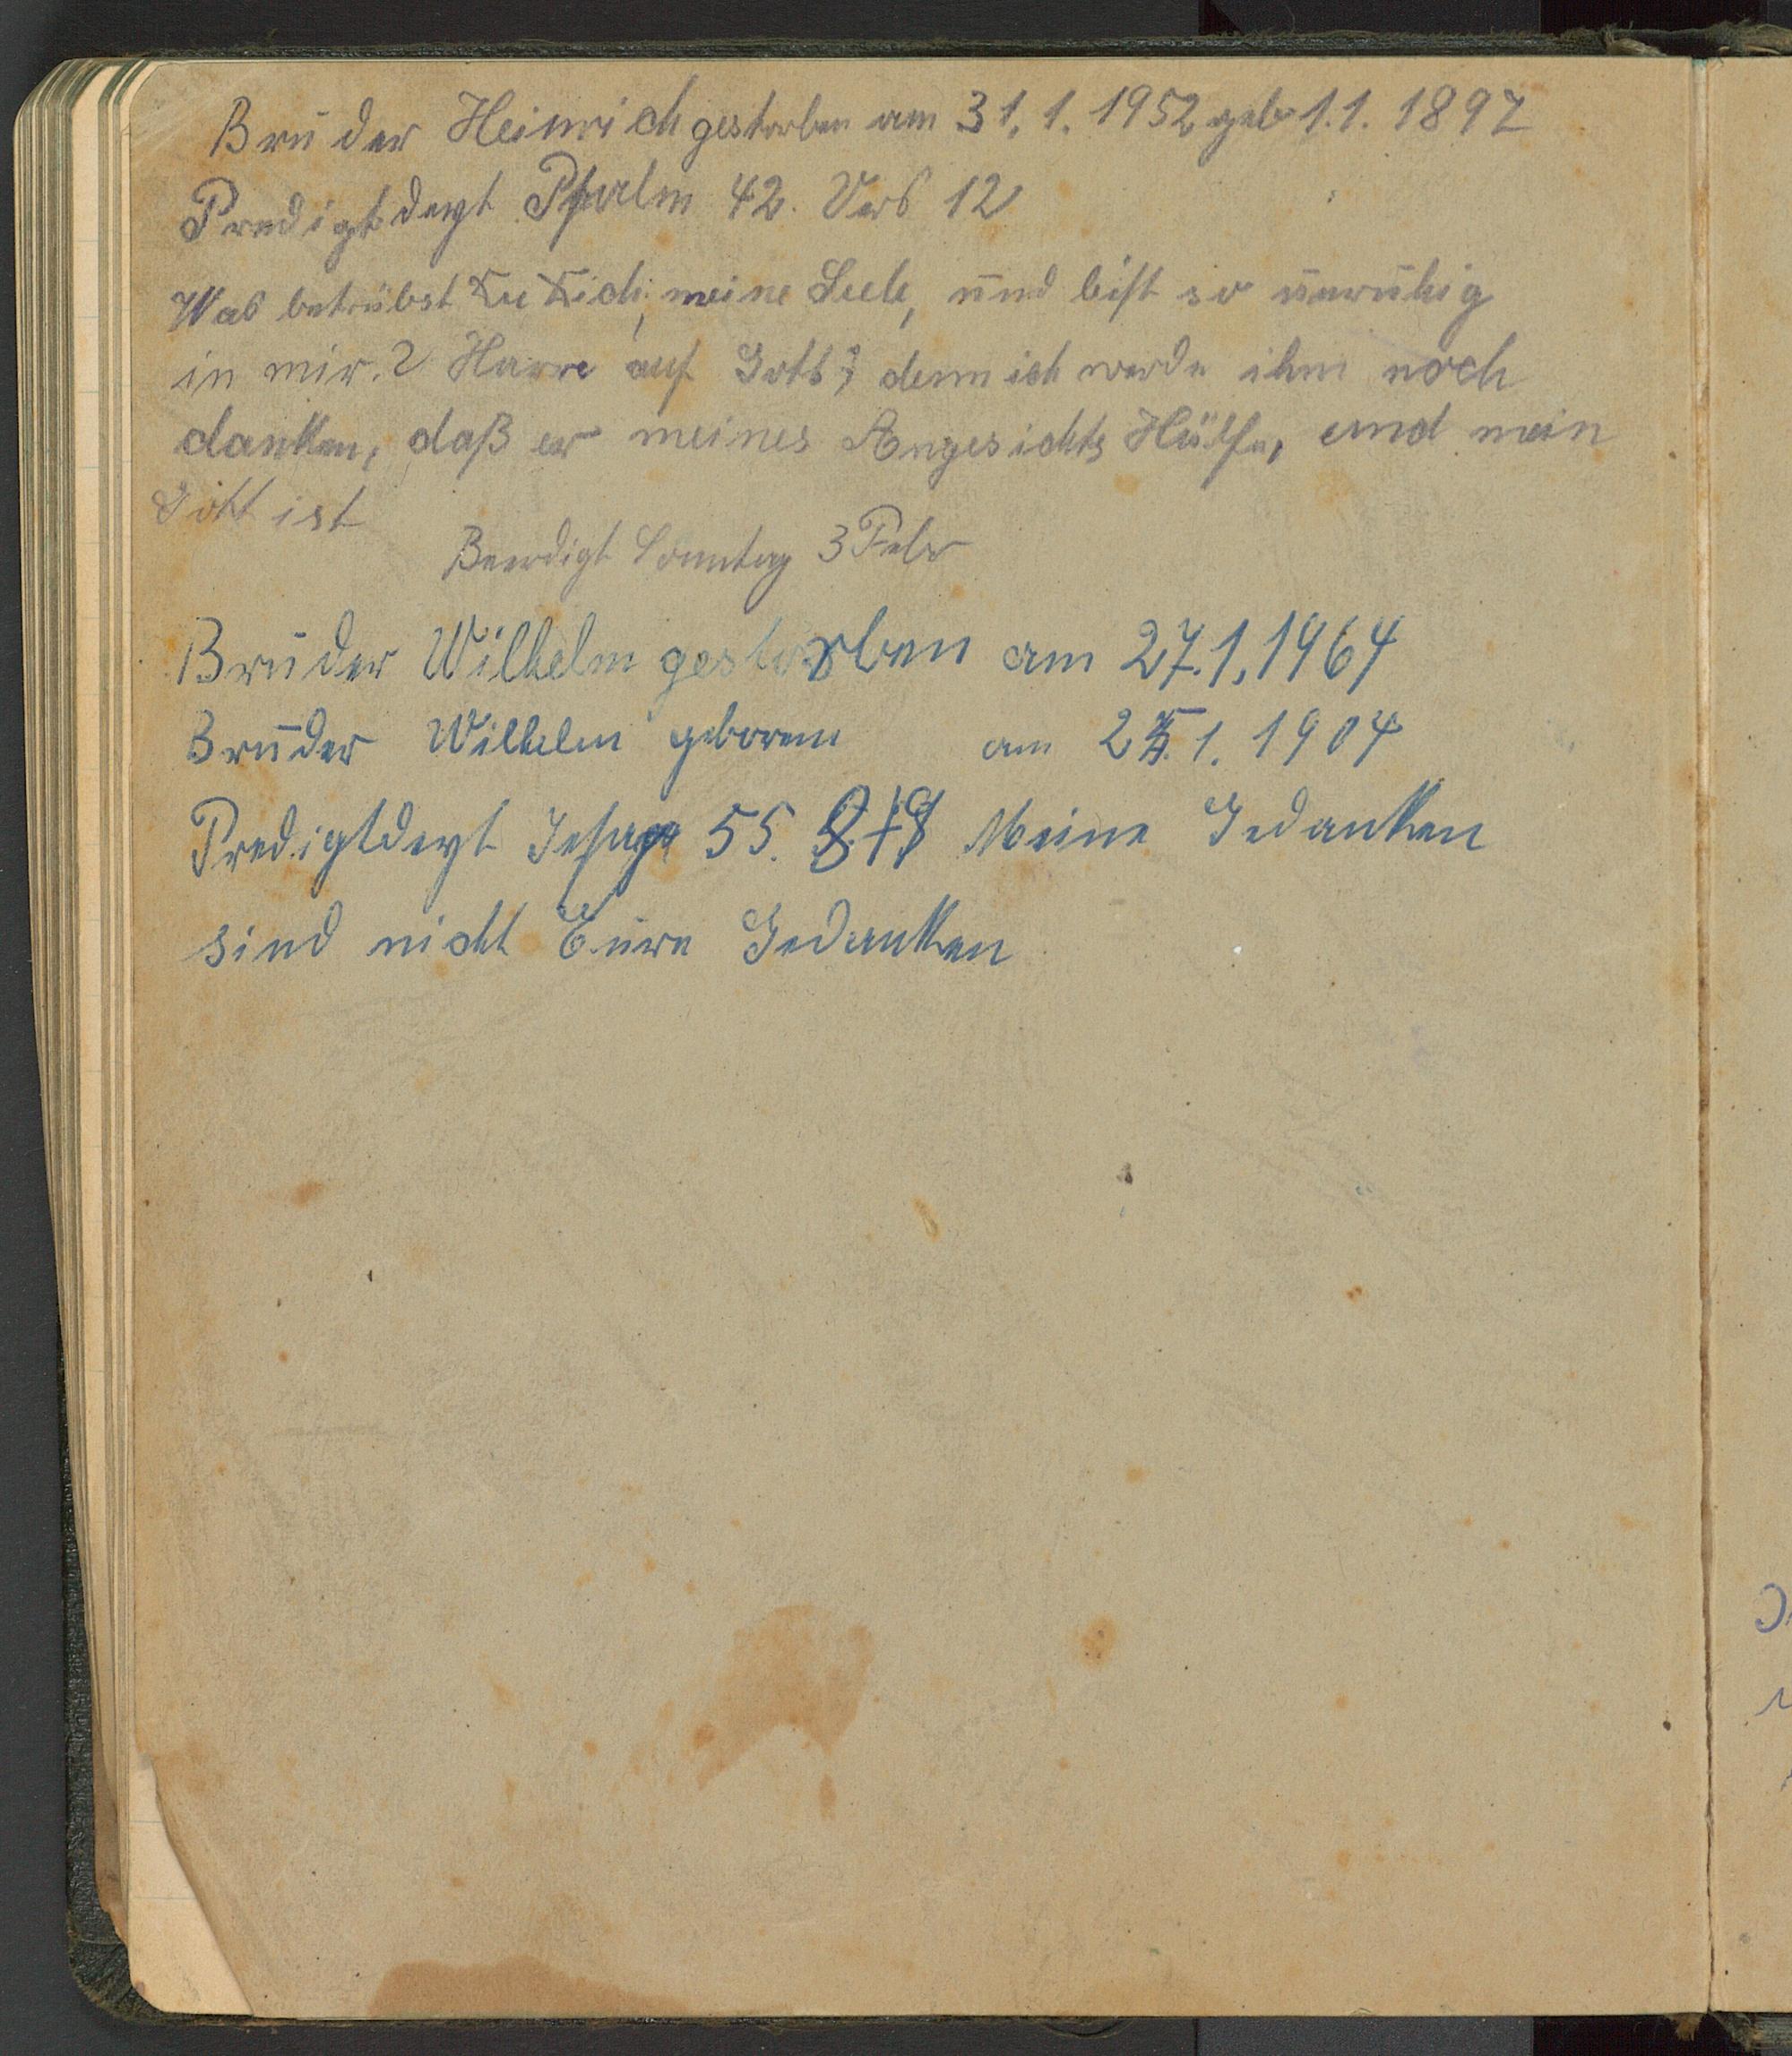 Bruder Heinrich gestorben am 31.1.1952 geb 1.1.1897
Predigtdext Psalm 42. Vers 12
Was betrübst Du Dich, meine Seele, und bist so unruhig
in mir.? Harre auf Gott; denn ich werde ihm noch
danken, daß er meines Angesichts Hülfe, und mein
Gott ist
Beerdigt Sonntag 3 Febr
Bruder Wilhelm gestorben am 27.1.1964
Bruder Wilhelm geboren am .1.1904
Predigtdext Jesaja 55. 8+9 Meine Gedanken
sind nicht Eure Gedanken